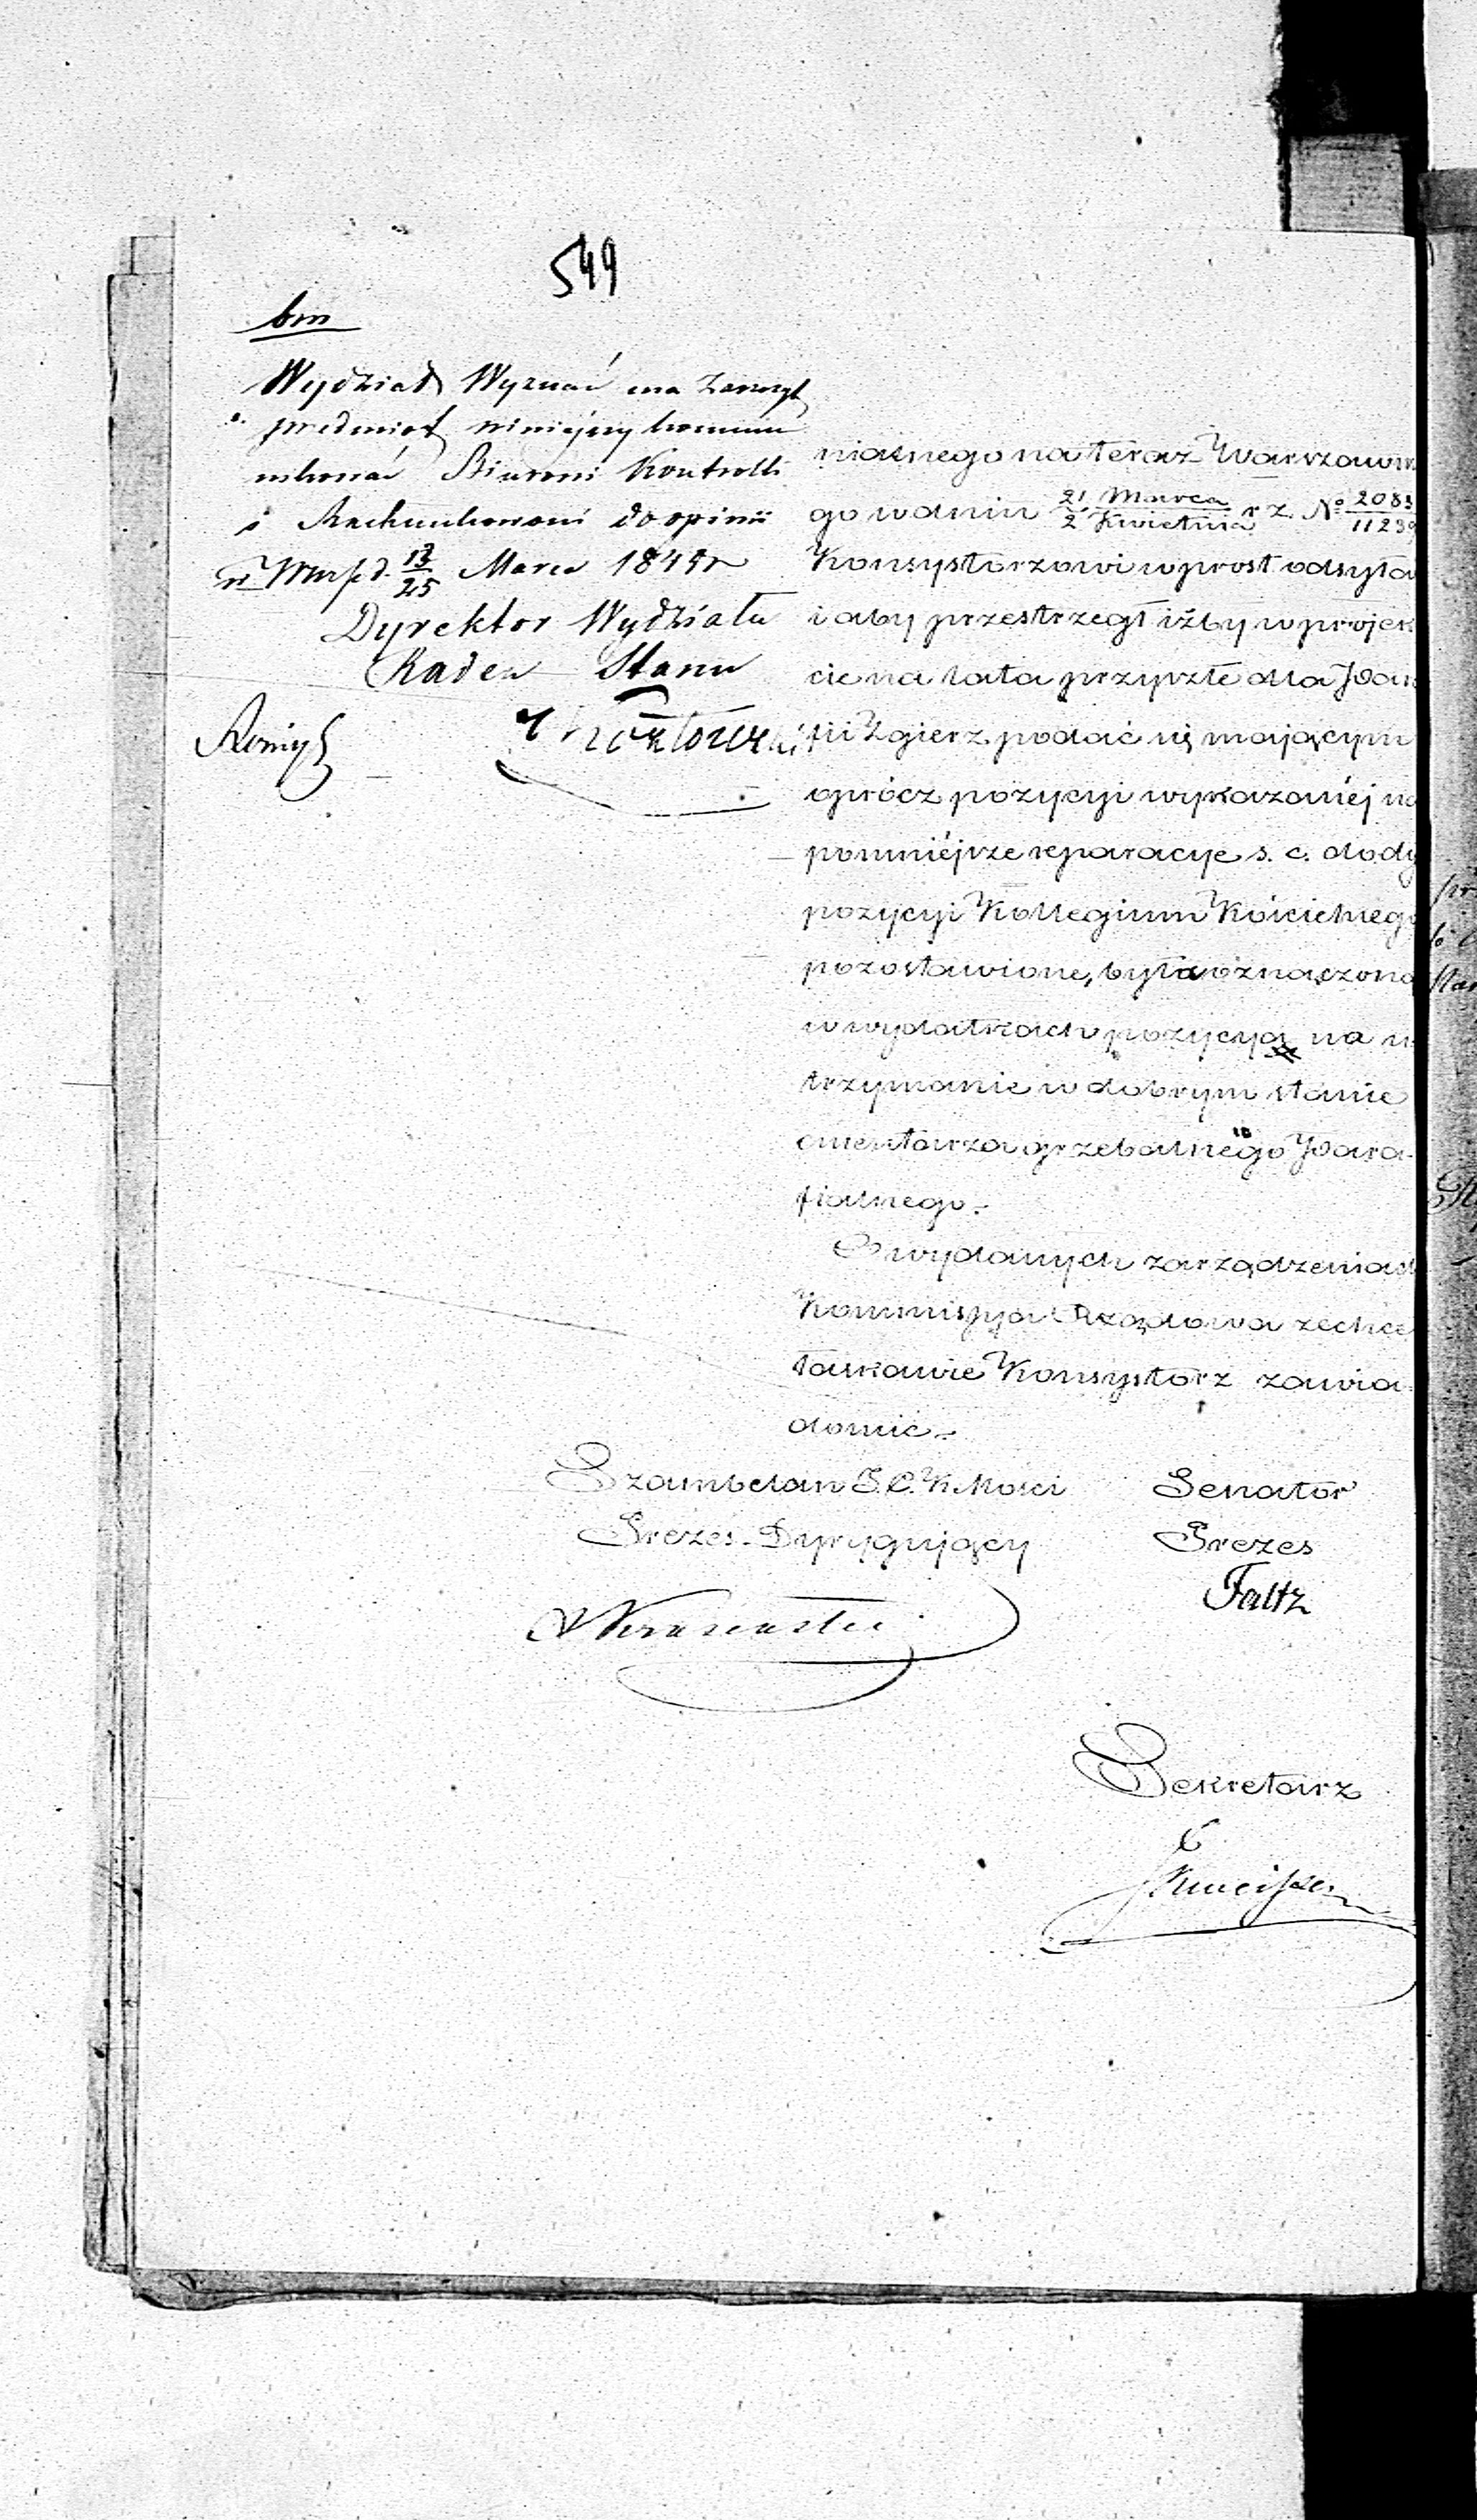 549
bm
Wydział Wyznań ma zaszczyt
przedmiot niniejszy kommu
nikować Biurowi Kontrolli
i Rachunkowości do opinii
w Warsz. d. 13/25 Marca 184
Dyrektor Wydziału
Radca Stanu
nialnego na teraz Warszaws
go w dniu 21 Marca/2 Kwietnia r z. No 2083/1123
Konsystorzowi wprost odsyłał
i aby przestrzegł iżby w projek
cie na lata przyszłe dla Para
fii Zgierz podać się mającym
oprócz pozycyi wykazanéj na
pomniéjsze reparacye s. c. do dy
pozycyi Kollegium Kościelnego
pozostawione, była oznaczona
w wydatkach pozycya na u
trzymanie w dobrym stanie
cmentarza grzebalnego Para-
fialnego.-
O wydanych zarządzeniach
Kommissya Rządowa zechce
łaskawie Konsystorz zawia-
domić.-
Szambelan J. C. K Mości
Prezes-Dyrygujący
Senator
Prezes
Faltz
Sekretarz